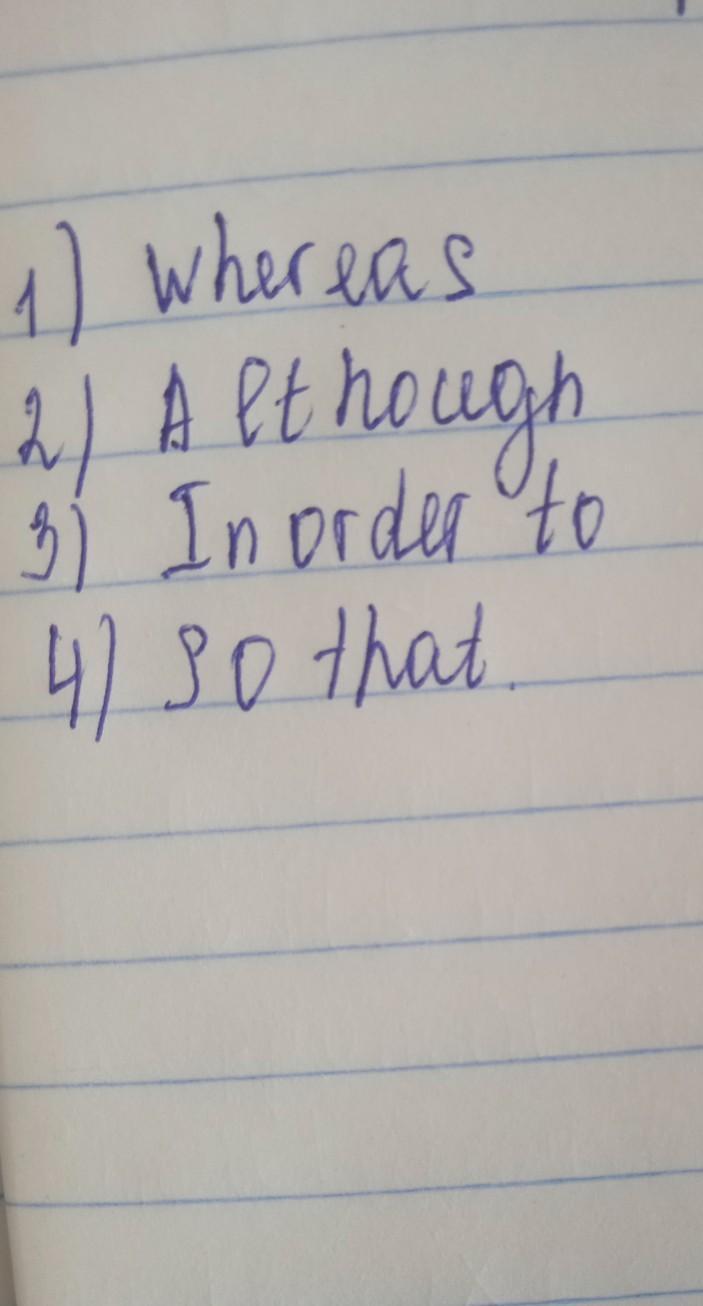 1) whereas
2) Although
3) In order to
4) so that.